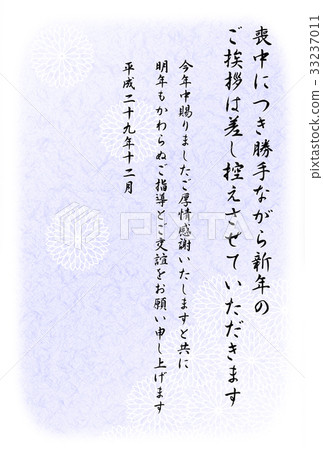 喪中につき勝手ながら新年の
ご挨拶は差し控えさせていただきます
今年中賜りましたご厚情感謝いたしますと共に
明年もかわらぬご指導とご交誼をお願い申し上げます
平成二十九年十二月
PIXTA
33237011